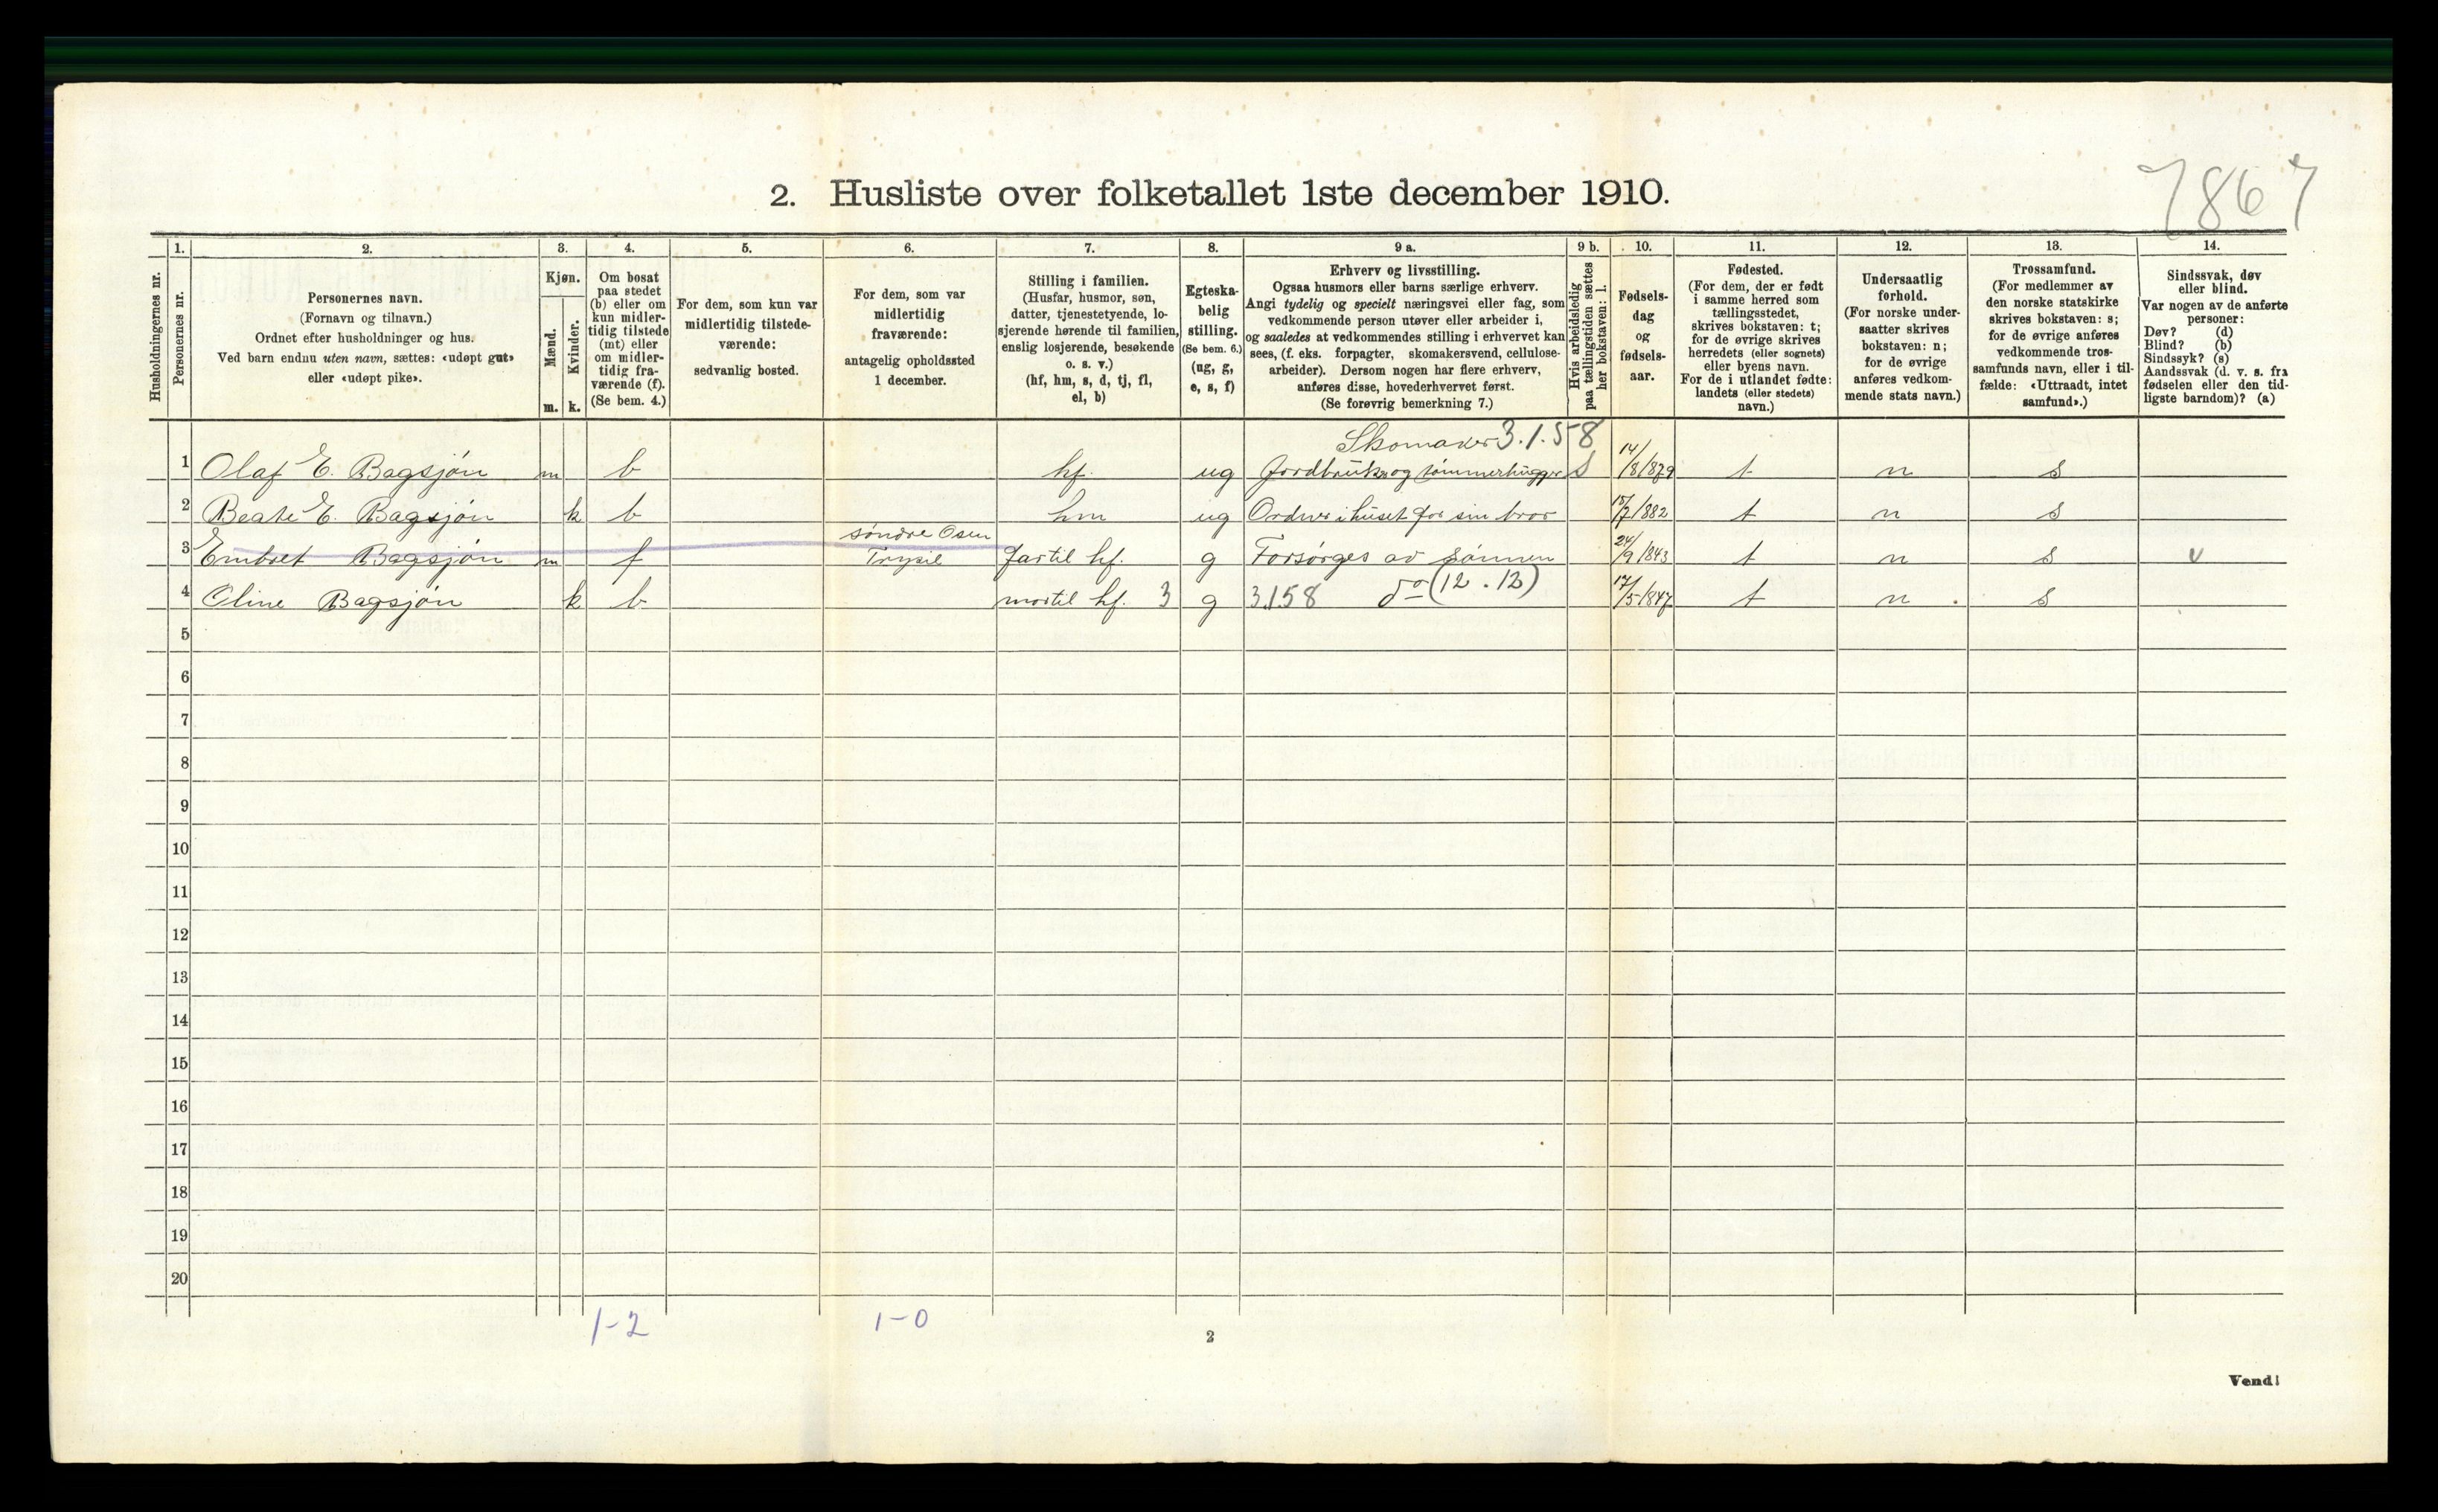 7867
2. Husliste over folketallet 1ste december 1910.
Husholdningernes nr.
1. Personernes nr.
2. Personernes navn.
(Fornavn og tilnavn.)
Ordnet efter husholdninger og hus.
Ved barn endnu uten navn, sættes: «udøpt gut»
eller «udøpt pike».
3. Kjøn.
Mænd. m.
Kvinder. k.
4. Om bosat
paa stedet
(b) eller om
kun midler-
tidig tilstede
(mt) eller
om midler-
tidig fra-
værende (f).
(Se bem. 4.)
5. For dem, som kun var
midlertidig tilstede-
værende:
sedvanlig bosted.
6. For dem, som var
midlertidig
fraværende:
antagelig opholdssted
1 december.
7. Stilling i familien.
(Husfar, husmor, søn,
datter, tjenestetyende, lo-
sjerende hørende til familien,
enslig losjerende, besøkende
o. s. v.)
(hf, hm, s, d, tj, fl,
el, b)
8. Egteska-
belig
stilling.
(Se bem. 6.)
(ug, g,
e, s, f)
9 a. Erhverv og livsstilling.
Ogsaa husmors eller barns særlige erhverv.
Angi tydelig og specielt næringsvei eller fag, som
vedkommende person utøver eller arbeider i,
og saaledes at vedkommendes stilling i erhvervet kan
sees, (f. eks. forpagter, skomakersvend, cellulose-
arbeider). Dersom nogen har flere erhverv,
anføres disse, hovederhvervet først.
(Se forøvrig bemerkning 7.)
9 b. Hvis arbeidsledig
paa tællingstiden sættes
her bokstaven: l.
10. Fødsels-
dag
og
fødsels-
aar.
11. Fødested.
(For dem, der er født
i samme herred som
tællingsstedet,
skrives bokstaven: t;
for de øvrige skrives
herredets (eller sognets)
eller byens navn.
For de i utlandet fødte:
landets (eller stedets)
navn.)
12. Undersaatlig
forhold.
(For norske under-
saatter skrives
bokstaven: n;
for de øvrige
anføres vedkom-
mende stats navn.)
13. Trossamfund.
(For medlemmer av
den norske statskirke
skrives bokstaven: s;
for de øvrige anføres
vedkommende tros-
samfunds navn, eller i til-
fælde: «Uttraadt, intet
samfund».)
14. Sindssvak, døv
eller blind.
Var nogen av de anførte
personer:
Døv? (d)
Blind? (b)
Sindssyk? (s)
Aandssvak (d. v. s. fra
fødselen eller den tid-
ligste barndom)? (a)
Skomaker 3.1.58
1 Olaf E. Bagsjøn m b hf. ug Jordbruker og tømmerhugger 14/8/879 t n s
2 Beate E. Bagsjøn k b hm ug Ordner i huset for sin bror 15/7/882 t n s
søndre Osen
3 Embret Bagsjøn m f Trysil far til hf. g Forsørges av sønnen 24/9/843 t n s v
4 Oline Bagsjøn k b mor til hf. 3 g 3.1.58 do (12.12) 17/5/847 t n. s
5
6
7
8
9
10
11
12
13
14
15
16
17
18
19
20
1-2 1-0
2
Vend!